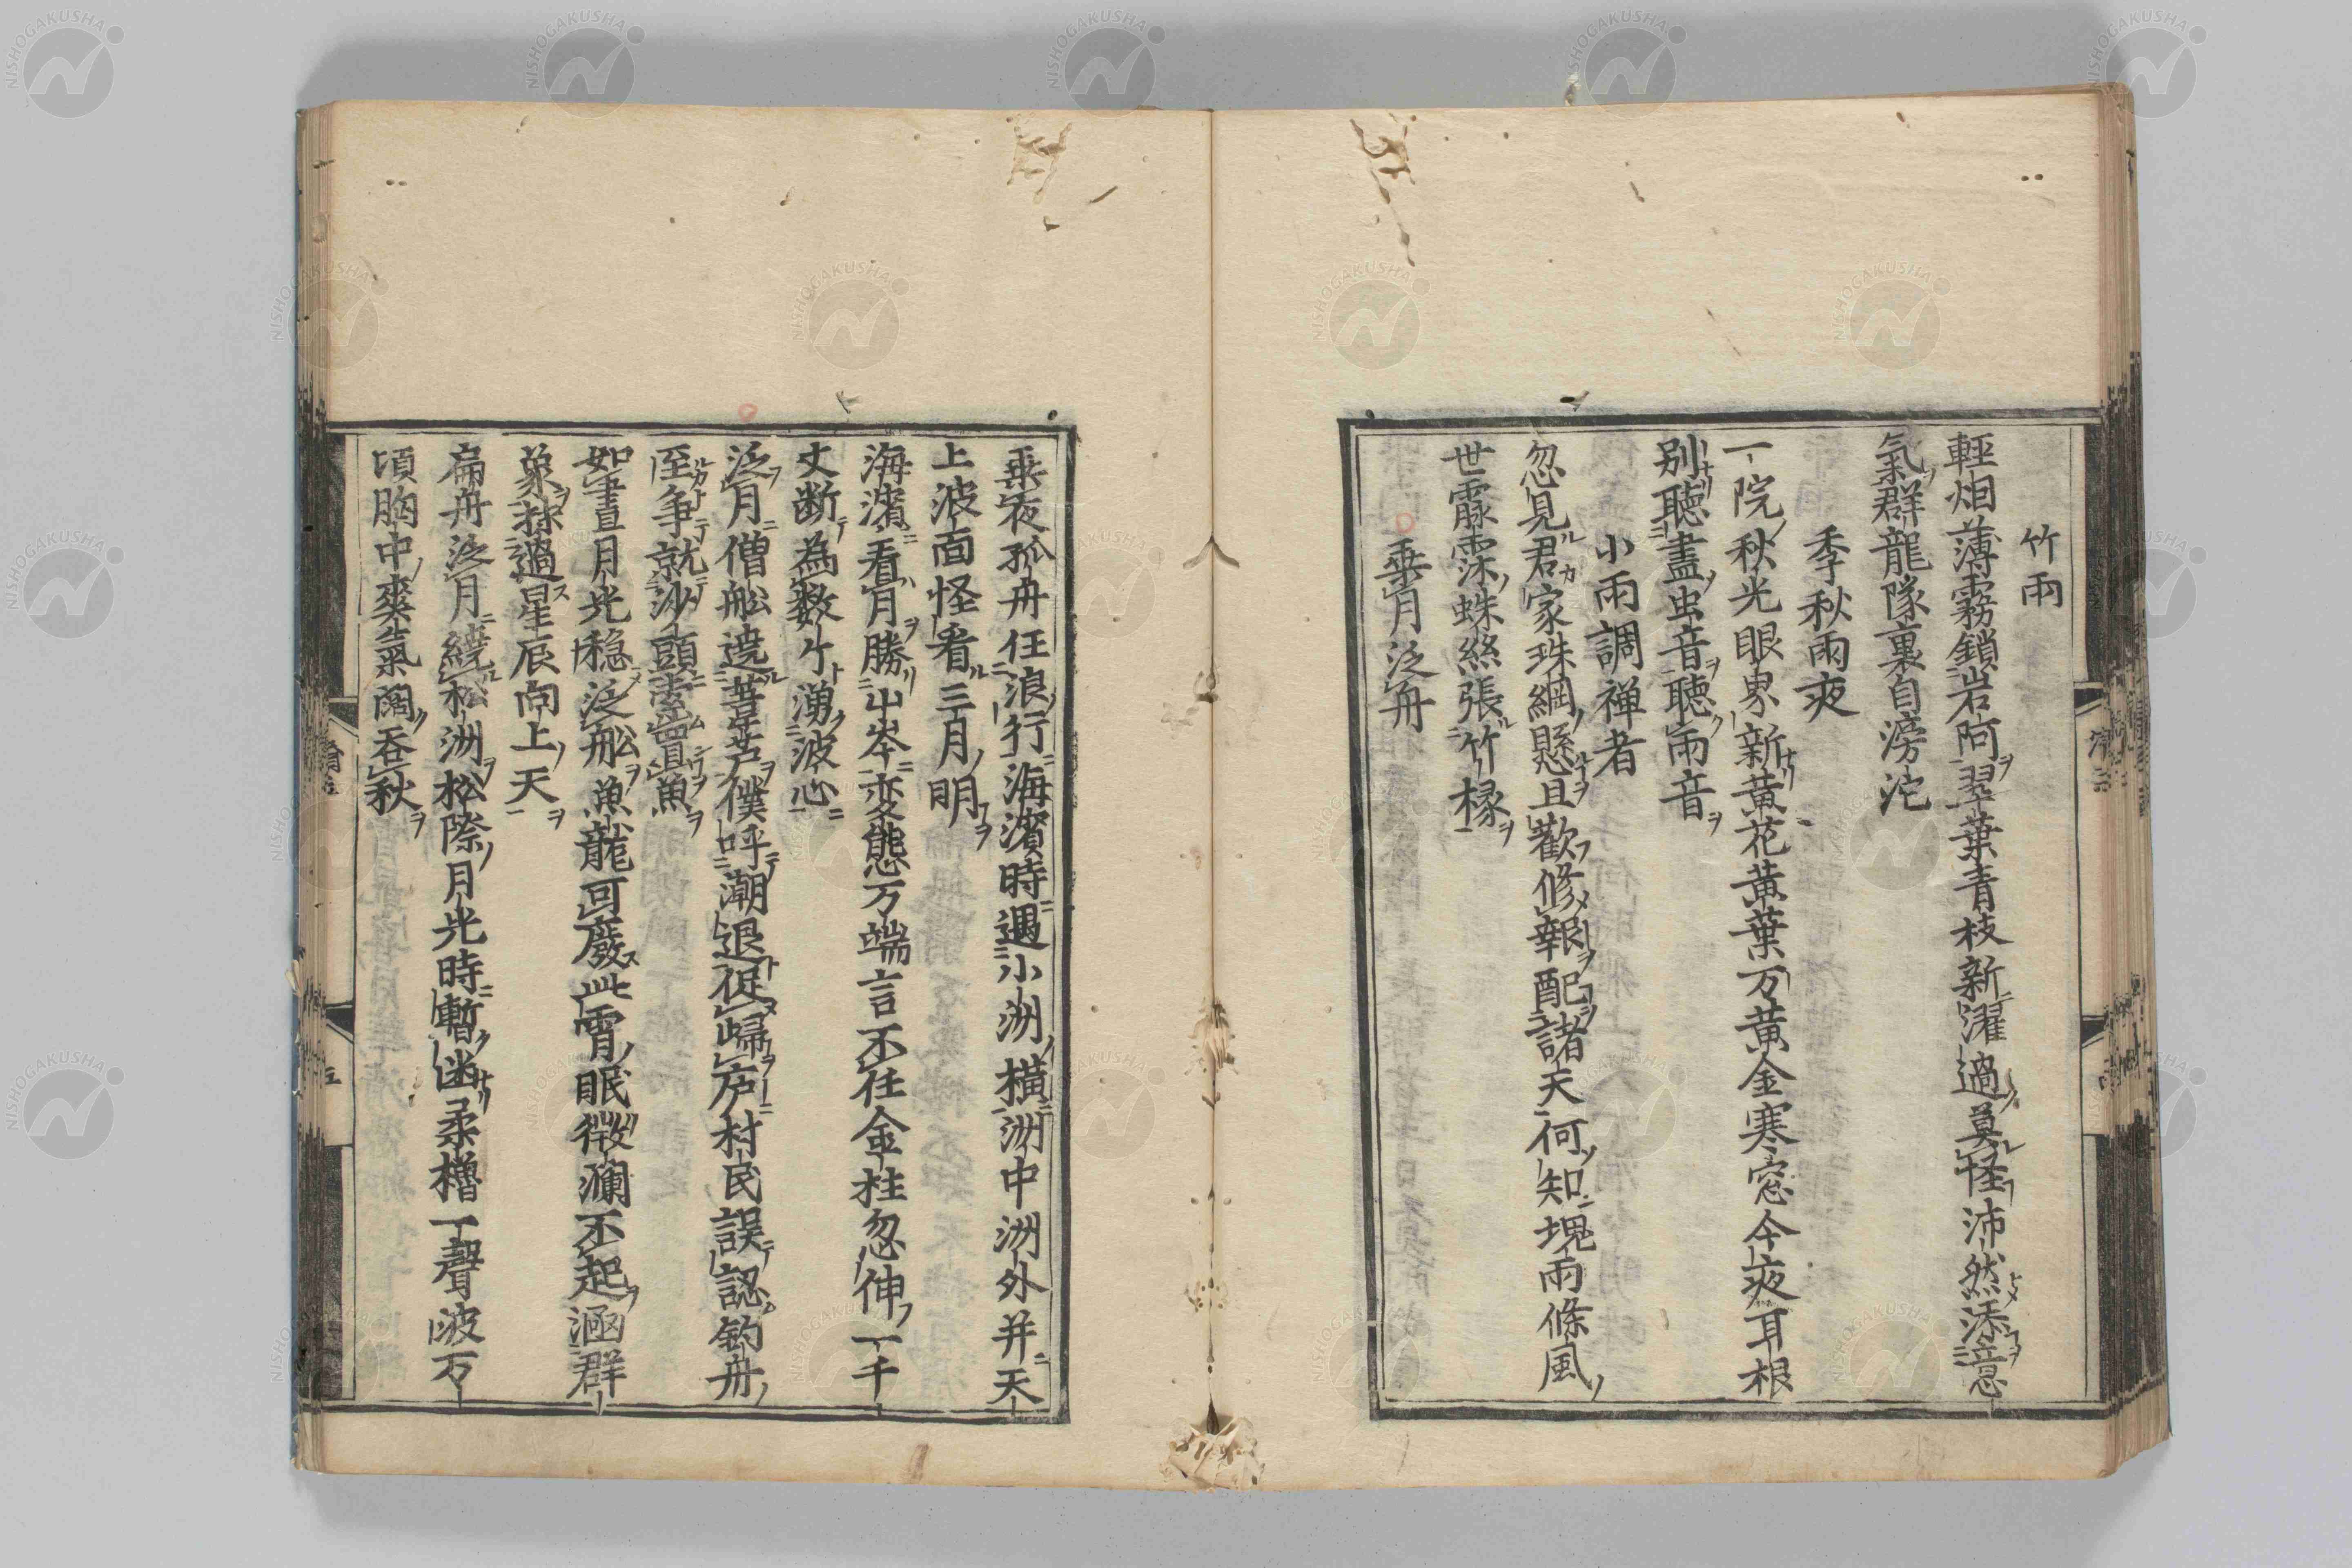 竹雨
輕烟薄霧鎖岩阿翠葉青枝新濯過莫怪沛然添意
氣群龍隊裏自滂沱
季秋雨夜
一院秋光眼界新黃花黃葉万黃金寒窓今夜耳根
別聴盡虫音聴雨音
小雨調禅者
忽見君家珠綱懸且歡修報配諸天何知塊雨條風
世霢霂蛛絲張竹椽
乗月泛舟
乗夜孤舟任浪行海濱時遇小洲横洲中洲外并天
上波面怪看三月明
海濱看月勝山岑変態万端言不任金柱忽伸一千
丈断為数片湧波心
泛月僧舩遶葦芦僕呼潮退促歸庐村民誤認釣舟
至争就沙頭索買魚
如晝月光穏泛舩魚龍可廢此宵眠微瀾不起涵群
象掠過星辰向上天
扁舟泛月繞松洲松際月光時暫幽柔櫓一聲波万
頃胸中爽氣闊呑秋